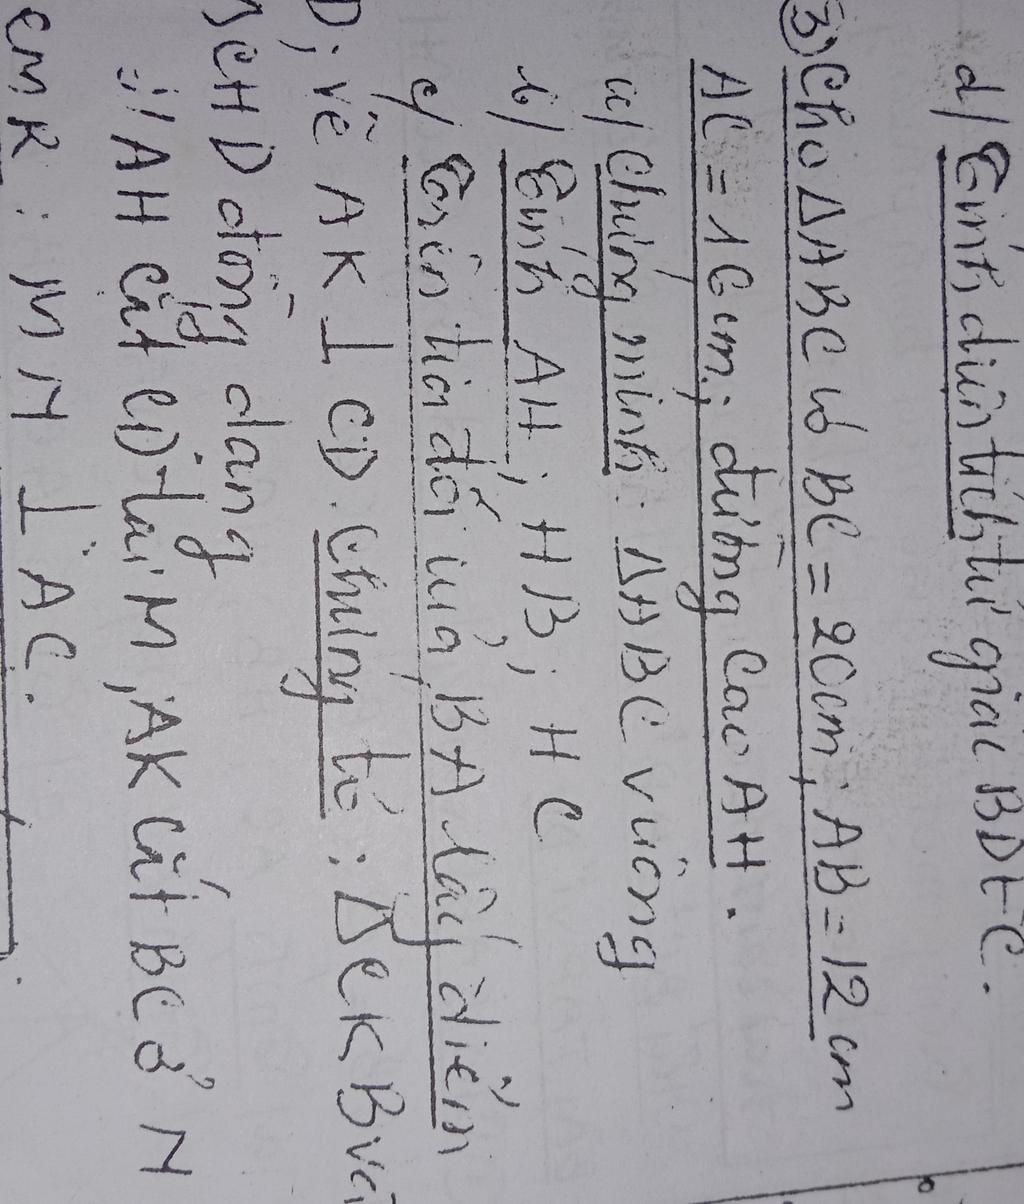 d/ Tính diện tích tứ giác BDEC.
③ Cho ΔABC có BC = 20cm; AB = 12 cm
AC = 16cm; đường Cao AH.
a/ Chứng minh: ΔABC vuông
b/ Tính AH; HB; HC
c/ Trên tia đối của BA lấy điểm
D; vẽ AK ⊥ CD. Chứng tỏ: ΔCKB và
ΔCHD đồng dạng
d/ AH cắt CD tại M, AK cắt BC ở N
CMR: MN ⊥ AC.